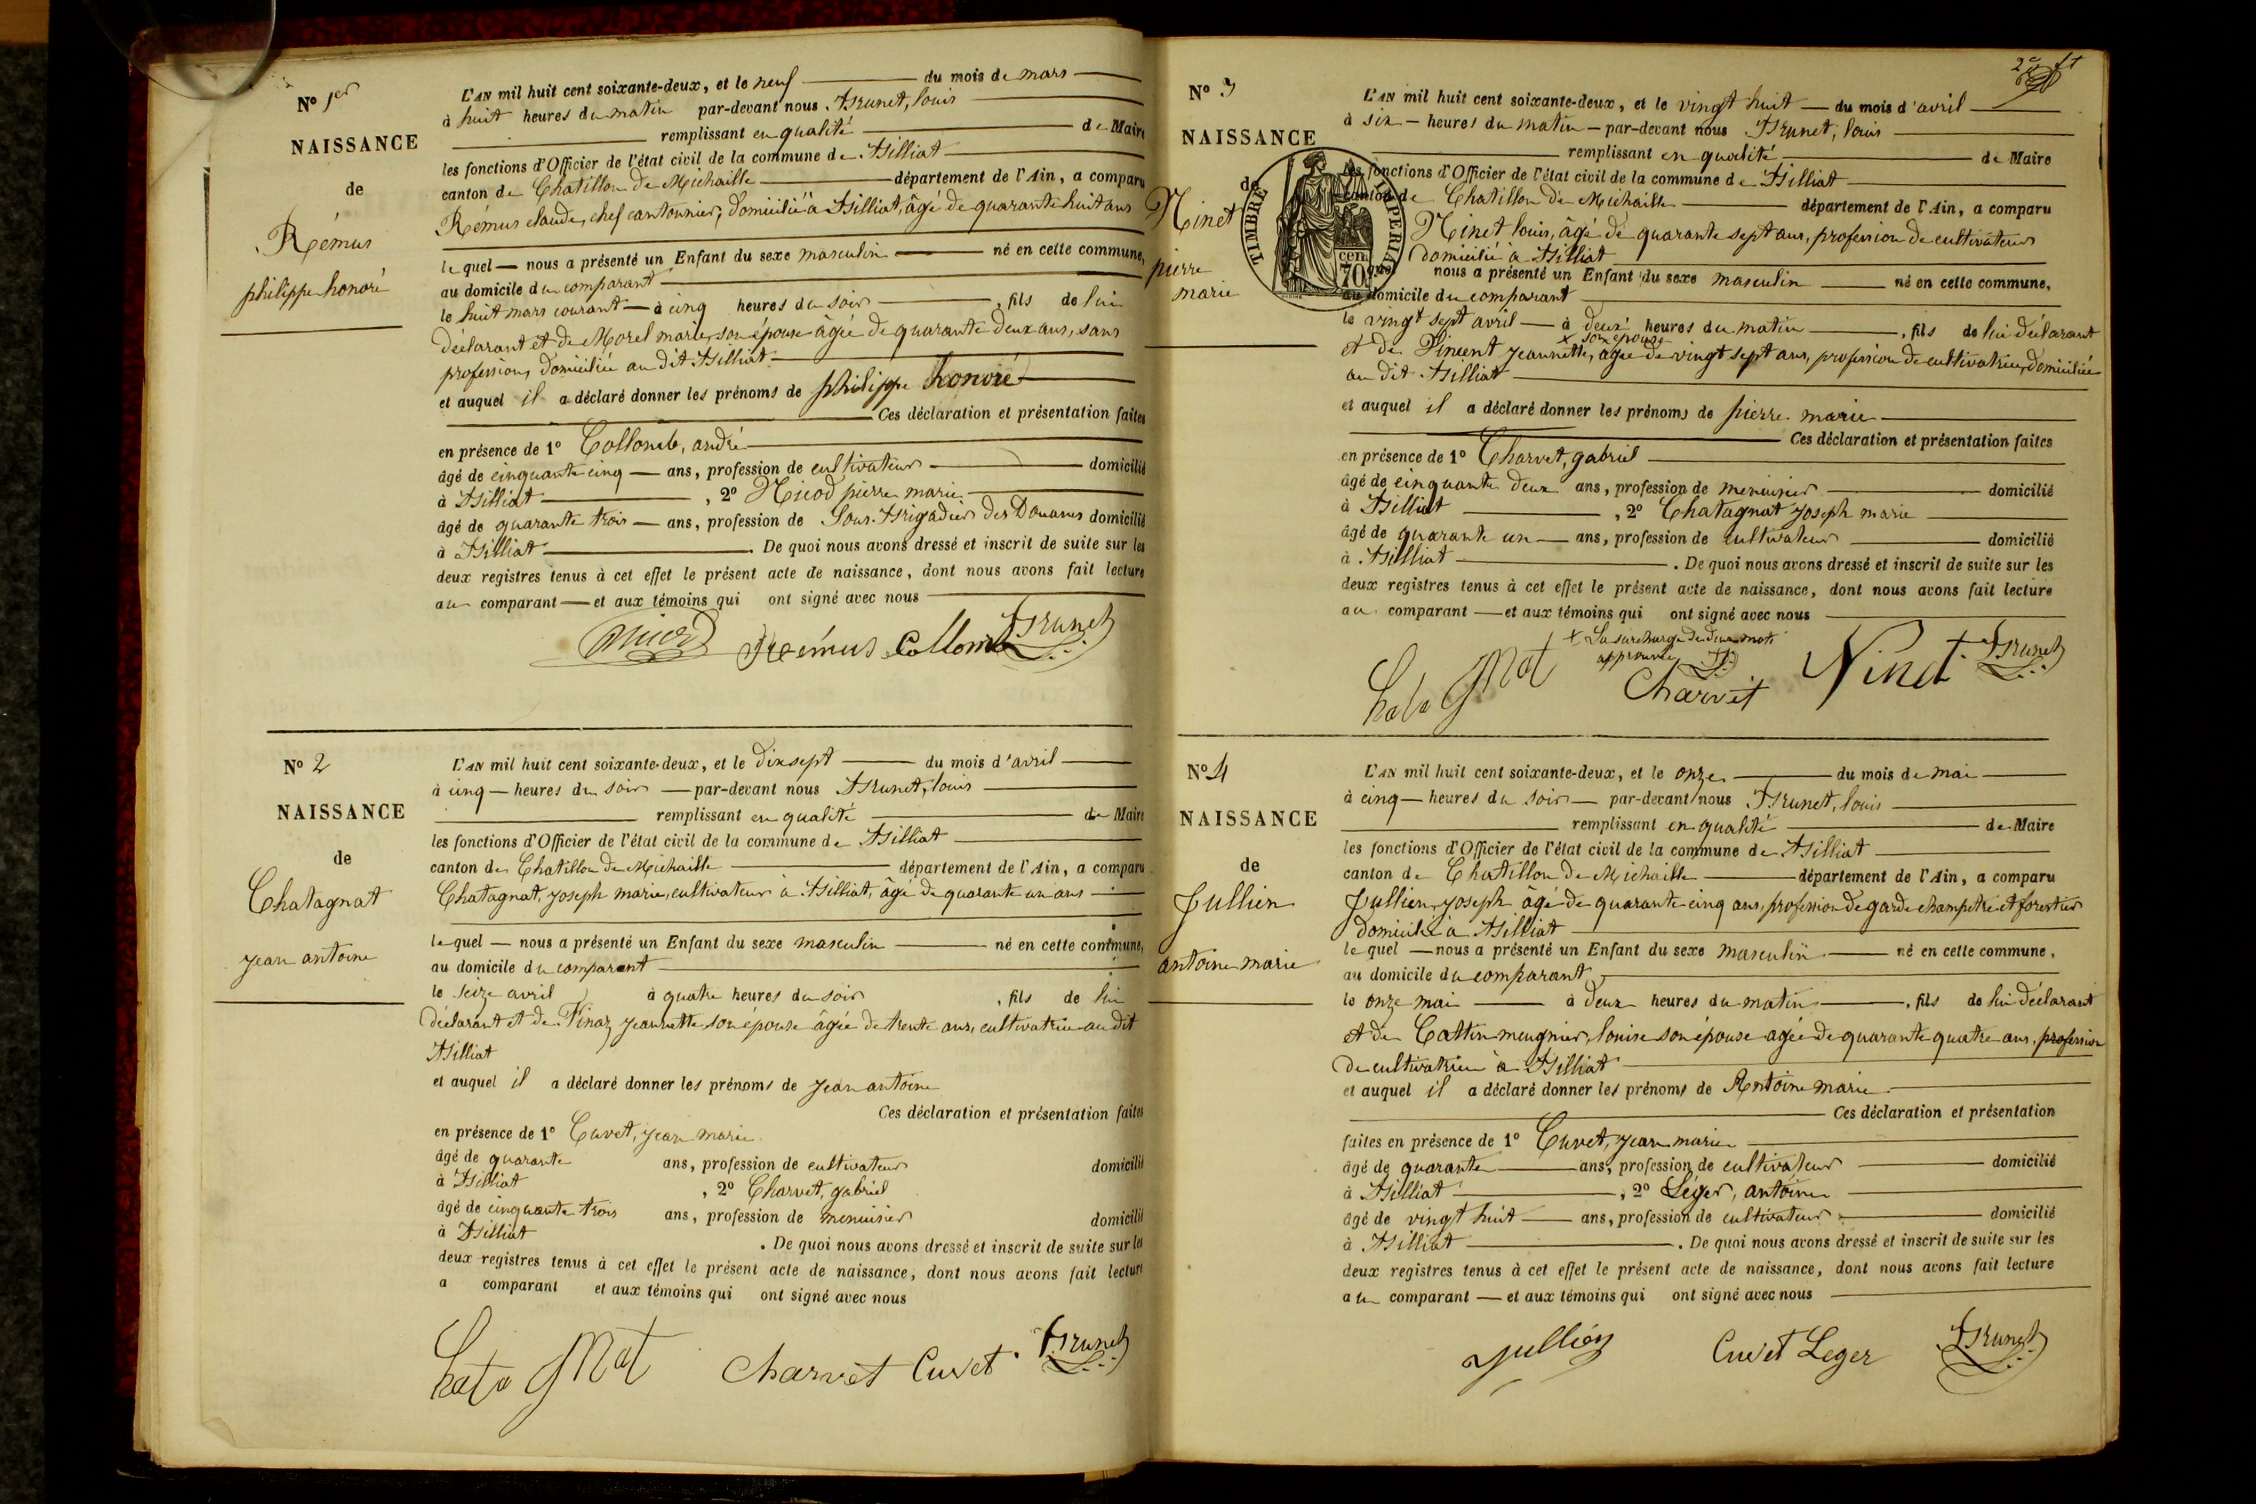 N° 1er
NAISSANCE
de
Rémus
philippe honoré
L'AN mil huit cent soixante-deux, et le neuf du mois de mars
à huit heures du matin par-devant nous Brunet, louis
remplissant en qualité de Maire
les fonctions d'Officier de l'état civil de la commune de Billiat
canton de Chatillon de Michaille département de l'Ain, a comparu
Rémus claude, chef cantonnier, domicilié à Billiat, âgé de quarante huit ans
le quel — nous a présenté un Enfant du sexe masculin né en cette commune,
au domicile du comparant
le huit mars courant — à cinq heures du soir , fils de lui
déclarant et de Morel marie, son épouse âgée de quarante deux ans, sans
profession, domiciliée au dit Billiat
et auquel il a déclaré donner les prénoms de philippe honoré
Ces déclaration et présentation faites
en présence de 1° Collomb, andré
âgé de cinquante cinq — ans, profession de cultivateur domicilié
à Billiat , 2° Nicod pierre marie
âgé de quarante trois — ans, profession de Sous-Brigadier des Douanes domicilié
à Billiat . De quoi nous avons dressé et inscrit de suite sur les
deux registres tenus à cet effet le présent acte de naissance, dont nous avons fait lecture
au comparant — et aux témoins qui ont signé avec nous
Nicod Rémus Collomb Brunet
N° 2
NAISSANCE
de
Chatagnat
jean antoine
L'AN mil huit cent soixante-deux, et le dix sept du mois d'avril
à cinq — heures du soir — par-devant nous Brunet, louis
remplissant en qualité de Maire
les fonctions d'Officier de l'état civil de la commune de Billiat
canton de Chatillon de Michaille département de l'Ain, a comparu
Chatagnat, joseph marie, cultivateur à Billiat, âgé de quarante un ans
le quel — nous a présenté un Enfant du sexe masculin né en cette commune,
au domicile du comparant
le seize avril à quatre heures du soir , fils de lui
déclarant et de Vinaz jeannette son épouse âgée de trente ans, cultivatrice au dit
Billiat
et auquel il a déclaré donner les prénoms de jean antoine
Ces déclaration et présentation faites
en présence de 1° Cuvet, jean marie
âgé de quarante ans, profession de cultivateur domicilié
à Billiat , 2° Charvet, gabriel
âgé de cinquante trois ans, profession de menuisier domicilié
à Billiat . De quoi nous avons dressé et inscrit de suite sur les
deux registres tenus à cet effet le présent acte de naissance, dont nous avons fait lecture
a comparant et aux témoins qui ont signé avec nous
ChatagNat Charvet Cuvet Brunet
N° 3
NAISSANCE
de
Ninet
pierre
marie
TIMBRE IMPERIAL
cen.
70
L'AN mil huit cent soixante-deux, et le vingt huit — du mois d'avril
à six — heures du matin — par-devant nous Brunet, louis
remplissant en qualité de Maire
les fonctions d'Officier de l'état civil de la commune de Billiat
canton de Chatillon de Michaille département de l'Ain, a comparu
Ninet louis, âgé de quarante sept ans, profession de cultivateur
domicilié à Billiat
quel nous a présenté un Enfant du sexe masculin né en cette commune,
au domicile du comparant
le vingt sept avril — à deux heures du matin , fils de lui déclarant
x son épouse
et de Vincent jeannette, âgée de vingt sept ans, profession de cultivatrice, domiciliée
au dit Billiat
et auquel il a déclaré donner les prénoms de pierre marie
Ces déclaration et présentation faites
en présence de 1° Charvet, gabriel
âgé de cinquante deux ans, profession de menuisier domicilié
à Billiat , 2° Chatagnat joseph marie
âgé de quarante un — ans, profession de cultivateur domicilié
à Billiat . De quoi nous avons dressé et inscrit de suite sur les
deux registres tenus à cet effet le présent acte de naissance, dont nous avons fait lecture
au comparant — et aux témoins qui ont signé avec nous
x La surcharge de deux mots
approuvée
ChatagNat Charvet Ninet Brunet
N° 4
NAISSANCE
de
Jullien
antoine marie
L'AN mil huit cent soixante-deux, et le onze du mois de mai
à cinq — heures du soir — par-devant nous Brunet, louis
remplissant en qualité de Maire
les fonctions d'Officier de l'état civil de la commune de Billiat
canton de Chatillon de Michaille département de l'Ain, a comparu
Jullien, joseph âgé de quarante cinq ans, profession de garde champetre et forestier
domicilié à Billiat
le quel — nous a présenté un Enfant du sexe masculin né en cette commune,
au domicile du comparant
le onze mai à deux heures du matin , fils de lui déclarant
et de Cattin meugnier, louise son épouse agée de quarante quatre ans, profession
de cultivatrice à Billiat
et auquel il a déclaré donner les prénoms de Antoine marie
Ces déclaration et présentation
faites en présence de 1° Cuvet, jean marie
âgé de quarante ans, profession de cultivateur domicilié
à Billiat , 2° Léger, antoine
âgé de vingt huit — ans, profession de cultivateur domicilié
à Billiat . De quoi nous avons dressé et inscrit de suite sur les
deux registres tenus à cet effet le présent acte de naissance, dont nous avons fait lecture
au comparant — et aux témoins qui ont signé avec nous
Jullien Cuvet Leger Brunet